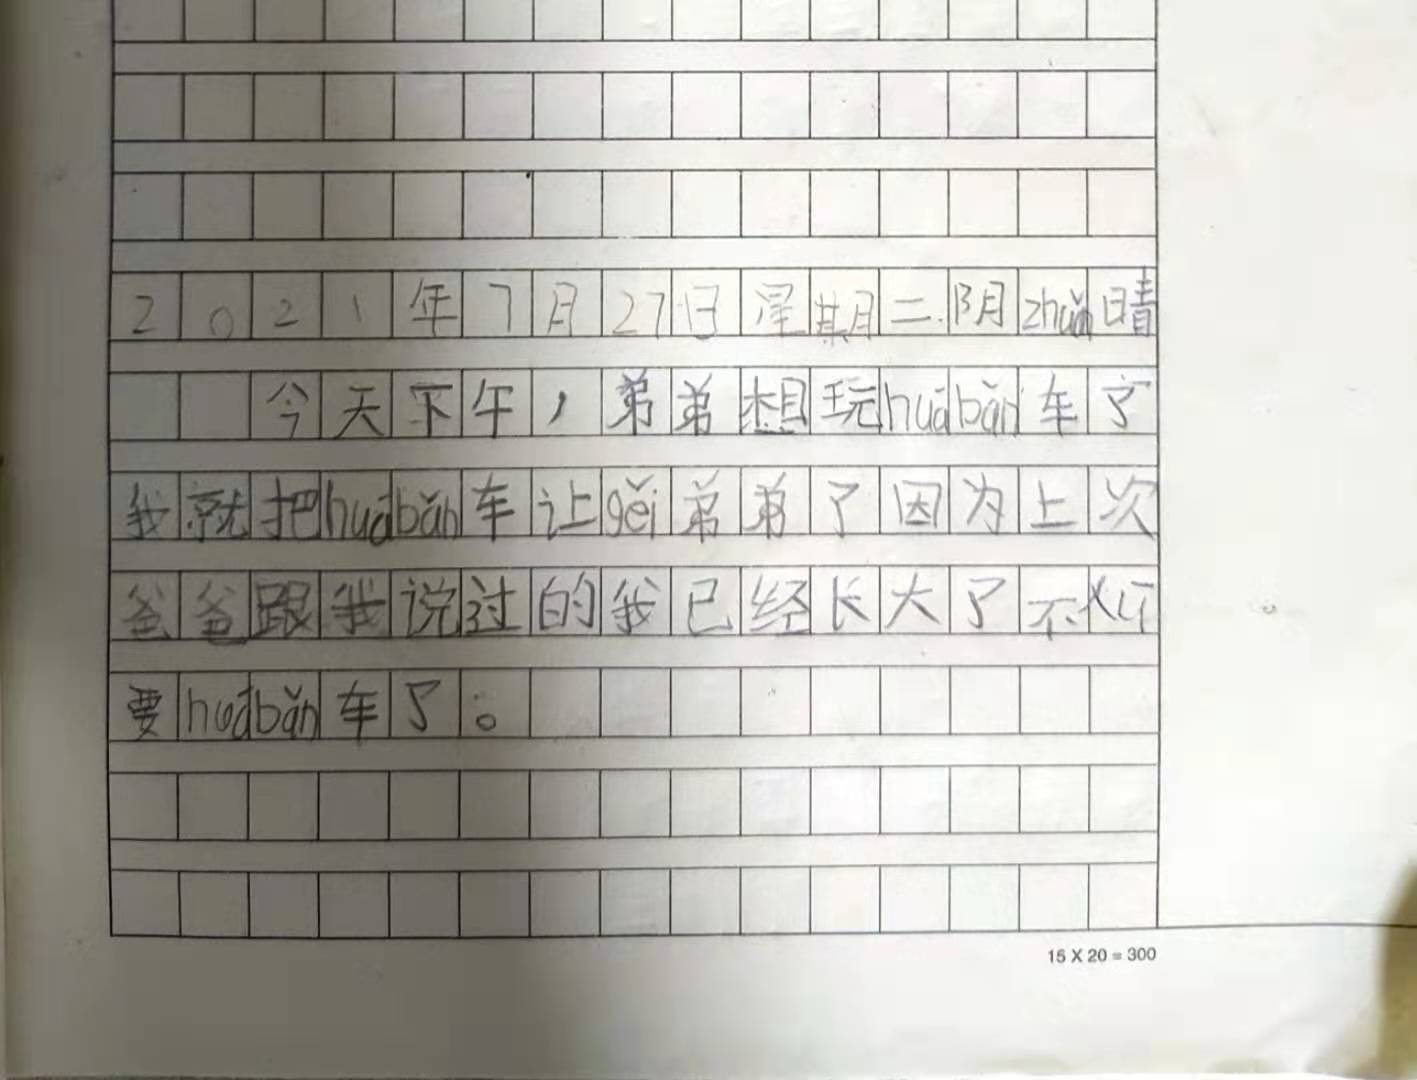 2021年7月27日星期二阴zhuǎn晴
今天下午，弟弟想玩huábǎn车了
我就把huábǎn车让gěi弟弟了因为上次
爸爸跟我说过的我已经长大了不xū
要huábǎn车了。
15 X 20 = 300